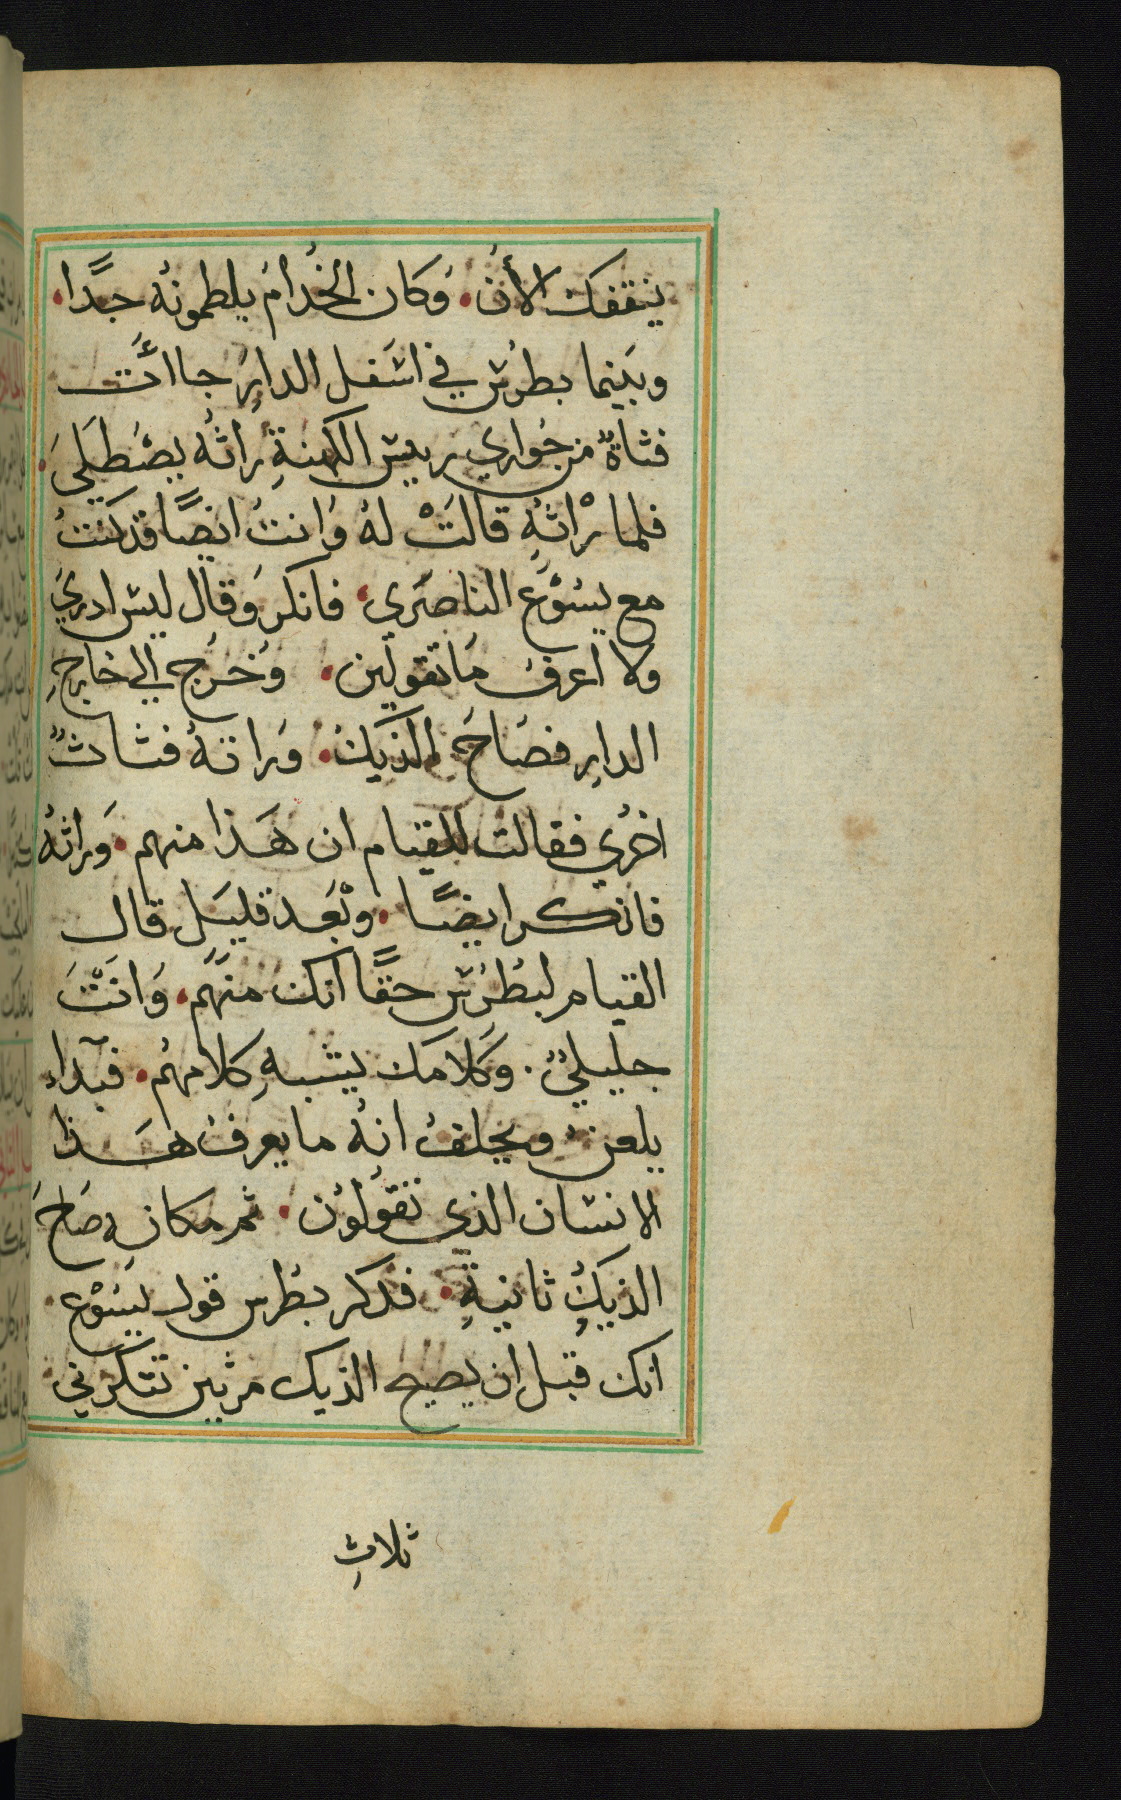 ينقفك الأن. وُكان الخُدامُ يلطمونهُ جدًا.
وبَينما بطرُس في اسَفل الدارِ جاأت
فتاةٌ من جُواري رييس الكهنةِ راتهُ يصْطلَيَ.
فلما رْاتهِ قالَتْ لهُ وُانتُ ايضًا قد كنتُ
مع يسُوْعَ الناصَري. فانكرَ وَقال ليس ادري
ولا اعرفُ مَا تقولَين. وَخرَج الي خارجِ
الدارِ فصَاحَ الذيَكُ. وَراتهُ فتاتٌ
اخرُي فقالت للقيام ان هَذا منهم. وَراتهُ
فانكر ايضًا. وبَعد قليَل قال
القيام لبُطرُس حقًا انكَ منهَم. وَانتَ
جليليٌ. وَكلامَك يشبهِ كلامهُم. فبَدا
يلعنُ ويحلفُ انهُ ما يعرفُ هَذا
الانسَان الذي تقوُلوُن. ثم مكانهِ صَاحَ
الذيكُ ثانيةِ. فذكر بطُرس قول يسُوْع.
انك قُبل ان يصيح الذيك مرتين تنكرني
ثلاثِ